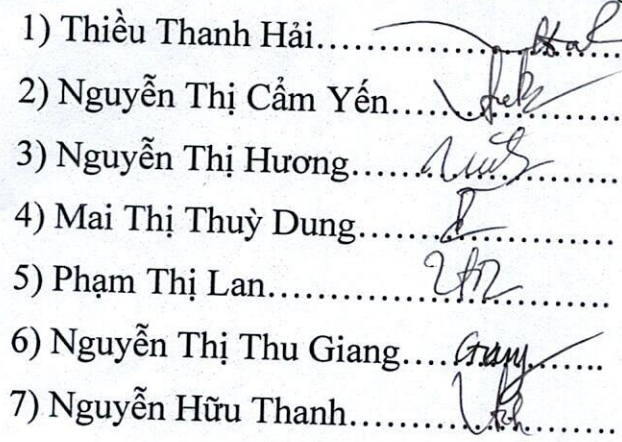 1) Thiều Thanh Hải
2) Nguyễn Thị Cẩm Yến
3) Nguyễn Thị Hương
4) Mai Thị Thuỳ Dung
5) Phạm Thị Lan
6) Nguyễn Thị Thu Giang.... Giang
7) Nguyễn Hữu Thanh